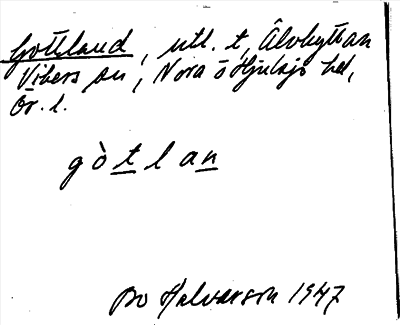 Gottland, utl. t. Älvhyttan
Vikers sn, Nora o Hjulsjö hd,
Ör. l.
gòtlan
Bo Halvarson 1947